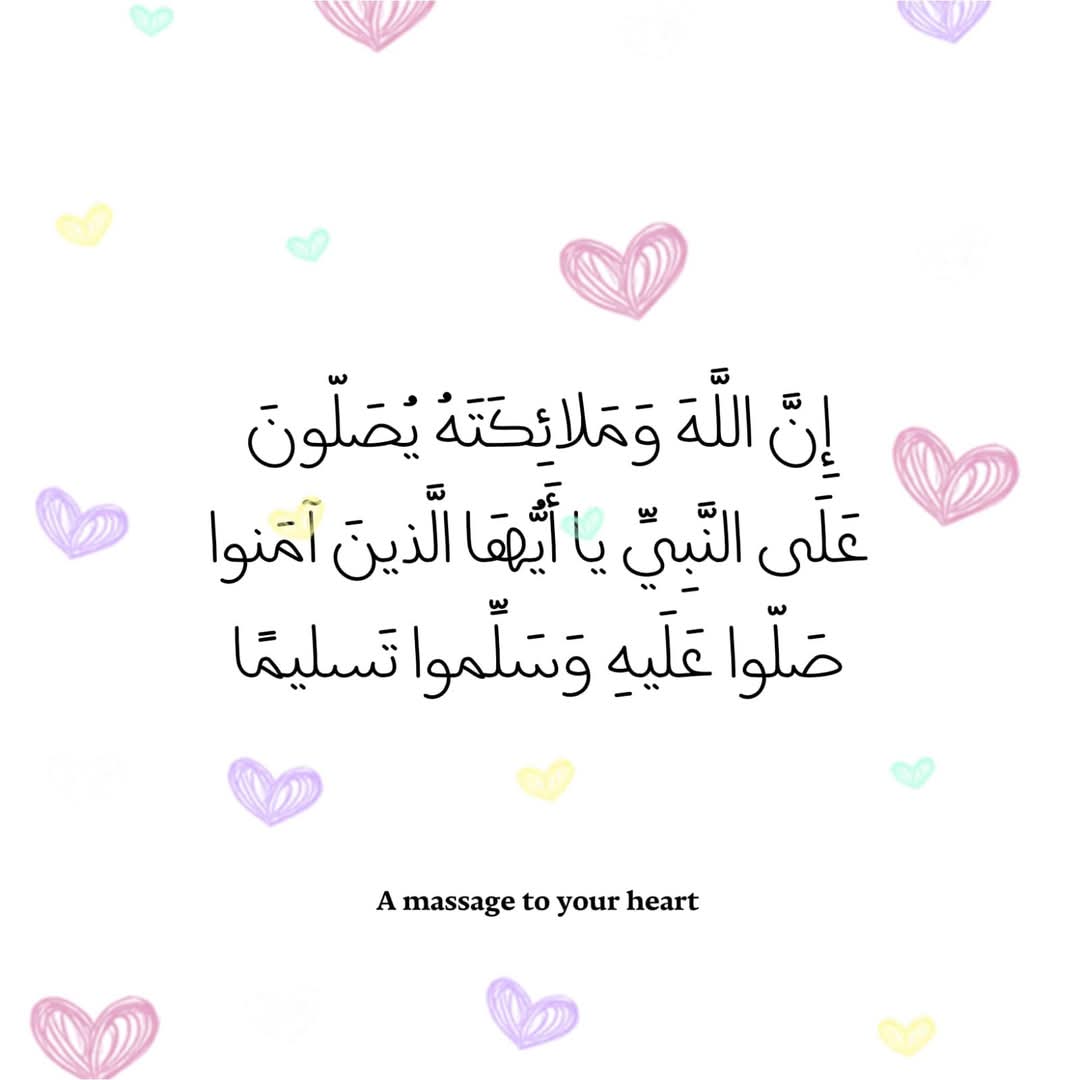 إِنَّ اللَّهَ وَمَلائِكَتَهُ يُصَلّونَ
عَلَى النَّبِيِّ يا أَيُّهَا الَّذينَ آمَنوا
صَلّوا عَلَيهِ وَسَلِّموا تَسليمًا
A massage to your heart